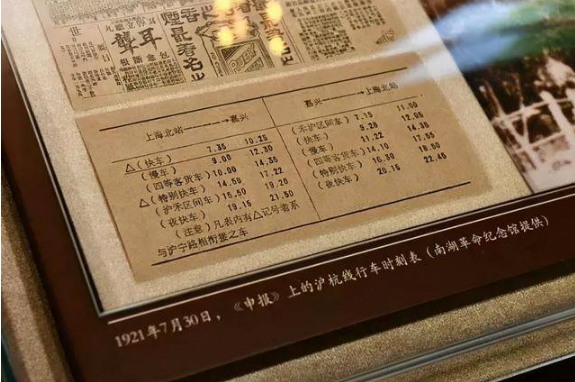 耳聋
上海北站 → 嘉兴
△（快车） 7.35 10.25
（慢车） 9.00 12.30
（四等客货车） 10.00 14.35
△（特别快车） 14.50 17.22
（沪禾区间车） 16.50 19.20
（夜快车） 19.15 21.50
（注意）凡表内有△记号者系
与沪宁路相衔接之车
嘉兴 → 上海北站
（禾沪区间车） 7.15
（快车） 9.28 12.05
（慢车） 11.22 14.35
（四等客货车） 14.10 17.55
（特别快车） 16.30 18.50
（夜快车） 20.15 22.45
1921年7月30日，《申报》上的沪杭线行车时刻表（南湖革命纪念馆提供）